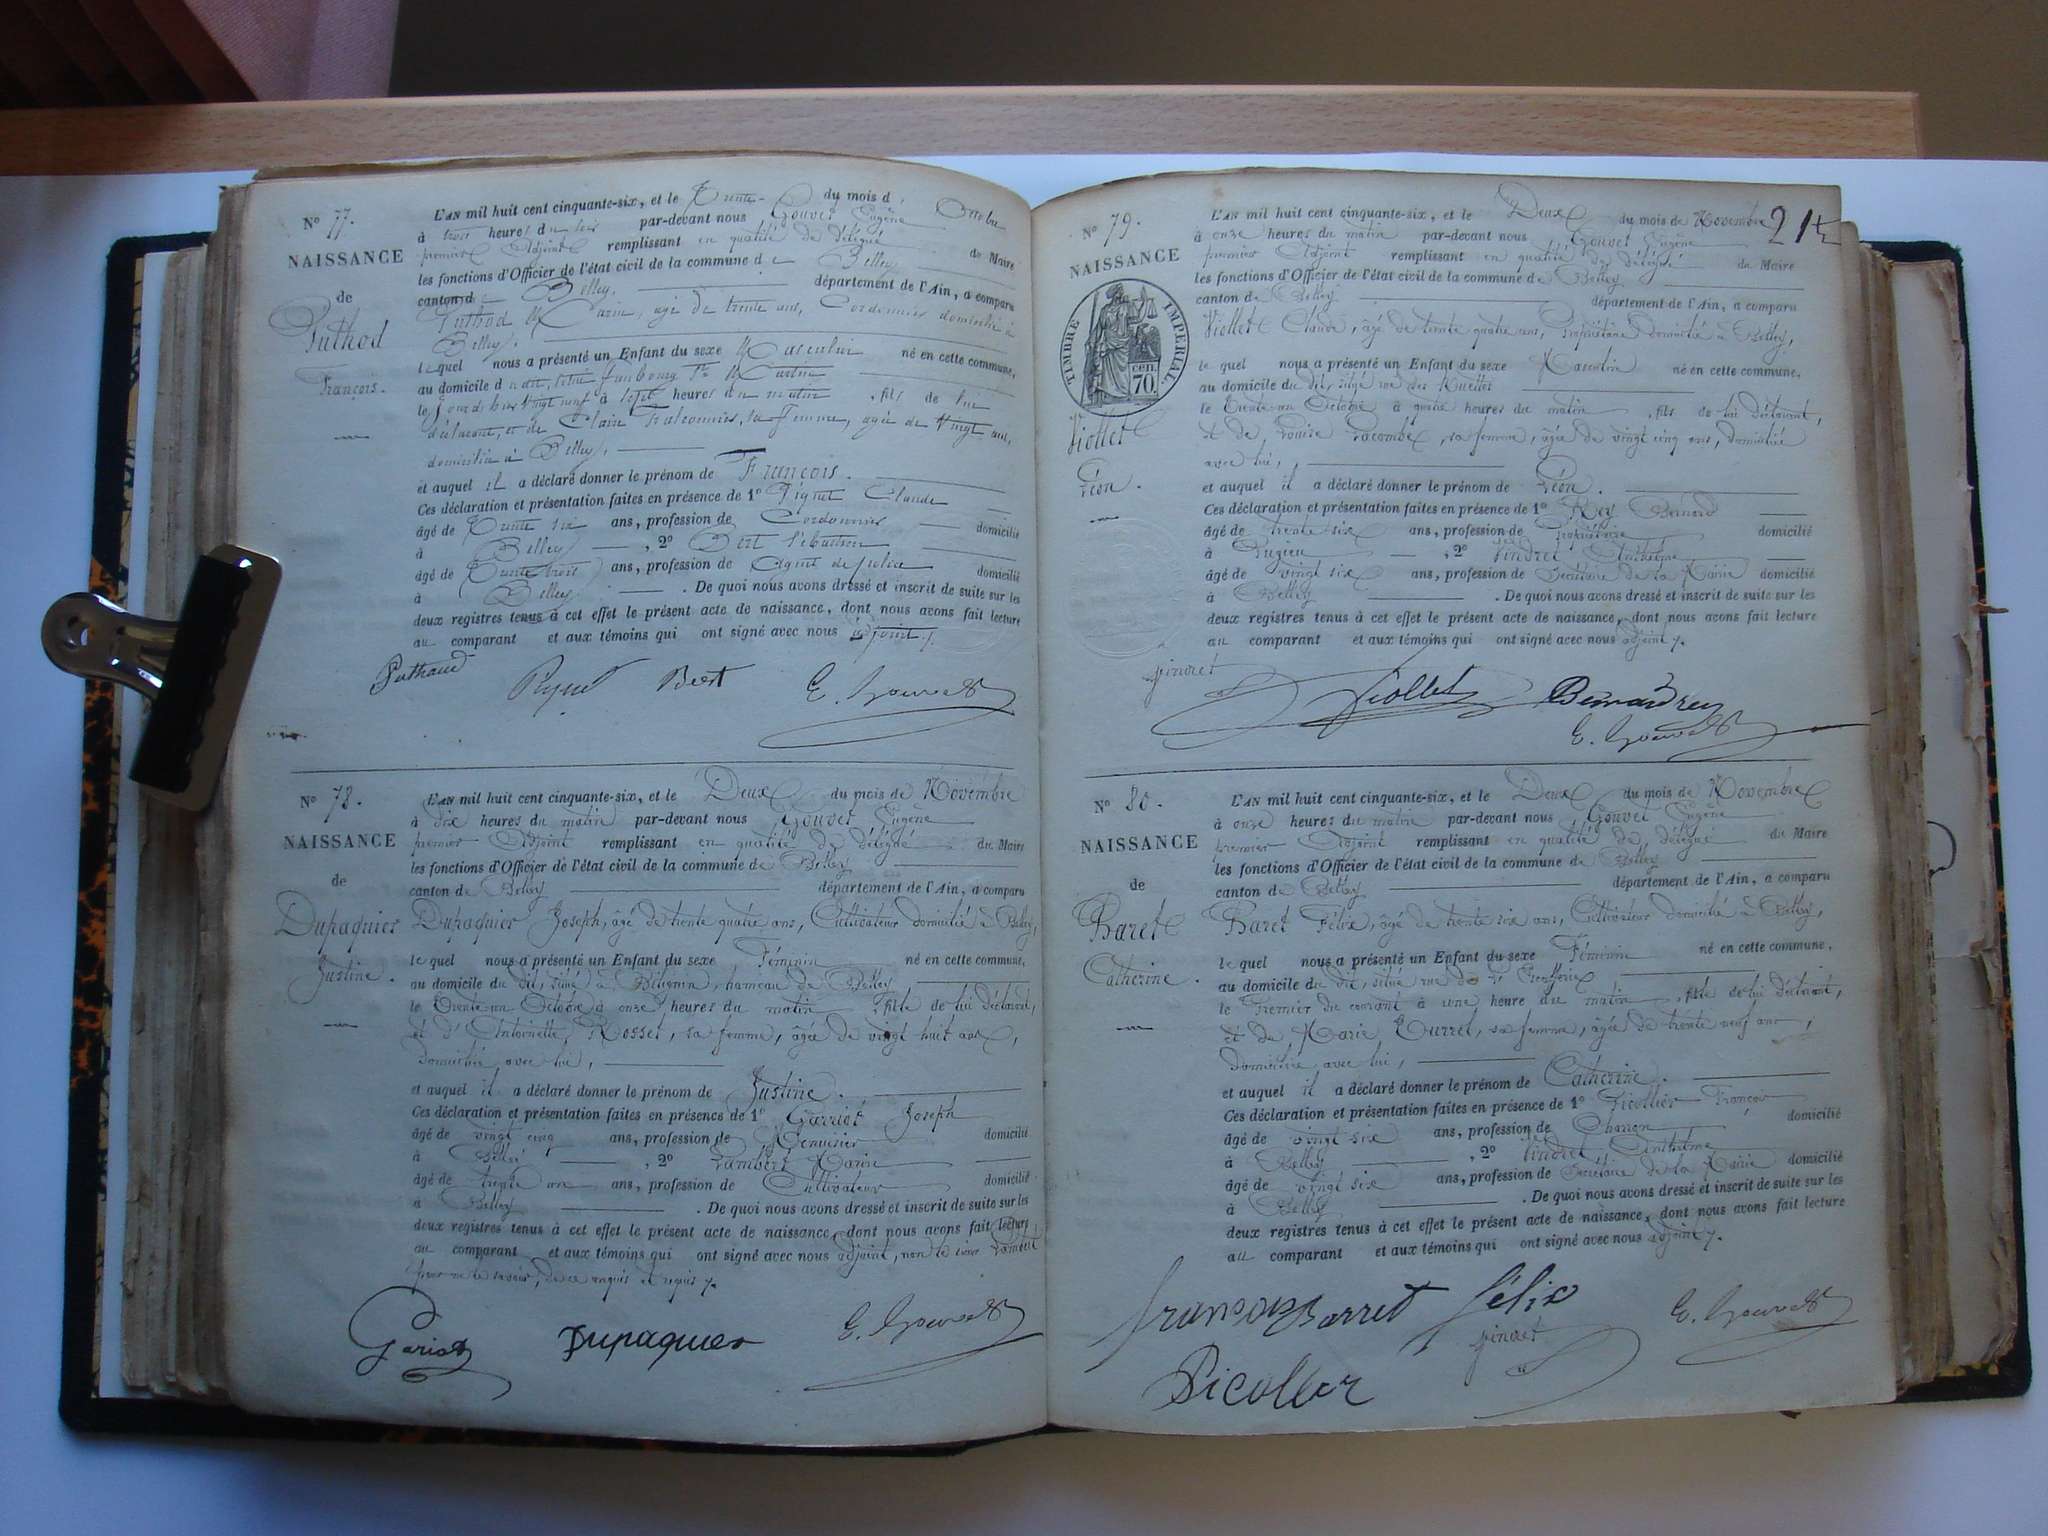 N° 77.
NAISSANCE
de
Puthod
François.
L'AN mil huit cent cinquante-six, et le Trente du mois d'Octobre
à trois heures du soir par-devant nous Gouvet Eugène
premier Adjoint remplissant en qualité de délégué du Maire
les fonctions d'Officier de l'état civil de la commune de Belley
canton de Belley, département de l'Ain, a comparu
Puthod Marin, âgé de trente ans, Cordonnier domicilié à
Belley,
lequel nous a présenté un Enfant du sexe Masculin né en cette commune,
au domicile faubourg St Martin
le jour d'hier vingt neuf à sept heures du matin, fils de lui
déclarant, et de Claire sa femme, âgée de vingt ans,
domiciliée à Belley,
et auquel il a déclaré donner le prénom de François.
Ces déclaration et présentation faites en présence de 1° Pignet Claude
âgé de Trente six ans, profession de Cordonnier domicilié
à Belley, 2° Bert Sébastien
âgé de Trente trois ans, profession de Agent de police domicilié
à Belley. De quoi nous avons dressé et inscrit de suite sur les
deux registres tenus à cet effet le présent acte de naissance, dont nous avons fait lecture
au comparant et aux témoins qui ont signé avec nous adjoint.
Puthaud Bert E. Gouvet
N° 78.
NAISSANCE
de
Dupaquier
Justine.
L'AN mil huit cent cinquante-six, et le Deux du mois de Novembre
à dix heures du matin par-devant nous Gouvet Eugène
premier Adjoint remplissant en qualité de délégué du Maire
les fonctions d'Officier de l'état civil de la commune de Belley
canton de Belley département de l'Ain, a comparu
Dupaquier Joseph, âgé de trente quatre ans, Cultivateur domicilié à Belley,
lequel nous a présenté un Enfant du sexe Féminin né en cette commune,
au domicile du dit, situé à Billignin, hameau de Belley
le Trente un Octobre à onze heures du matin, fille de lui déclarant,
et d'Antoinette Rosset, sa femme, âgée de vingt huit ans,
domiciliée avec lui,
et auquel il a déclaré donner le prénom de Justine.
Ces déclaration et présentation faites en présence de 1° Garriot Joseph
âgé de vingt cinq ans, profession de Menuisier domicilié
à Belley, 2° Lambert Marin
âgé de trente un ans, profession de Cultivateur domicilié
à Belley. De quoi nous avons dressé et inscrit de suite sur les
deux registres tenus à cet effet le présent acte de naissance, dont nous avons fait lecture
au comparant et aux témoins qui ont signé avec nous adjoint, non le sieur Lambert
pour ne le savoir, de ce enquis et requis.
Gariot Dupaquier E. Gouvet
21
N° 79.
NAISSANCE
TIMBRE IMPERIAL.
70 cen.
Viollet
Léon.
L'AN mil huit cent cinquante-six, et le Deux du mois de Novembre
à onze heures du matin par-devant nous Gouvet Eugène
premier Adjoint remplissant en qualité de délégué du Maire
les fonctions d'Officier de l'état civil de la commune de Belley
canton de Belley département de l'Ain, a comparu
Viollet Claude, âgé de trente quatre ans, Propriétaire domicilié à Belley,
lequel nous a présenté un Enfant du sexe Masculin né en cette commune,
au domicile du dit, situé rue des Ruettes
le Trente un Octobre à quatre heures du matin, fils de lui déclarant,
et de Louise Lacombe, sa femme, âgée de vingt cinq ans, domiciliée
avec lui,
et auquel il a déclaré donner le prénom de Léon.
Ces déclaration et présentation faites en présence de 1° Rey Bernard
âgé de trente six ans, profession de Propriétaire domicilié
à Pugieu, 2° Pindret Anthelme
âgé de vingt six ans, profession de Secrétaire de la Mairie domicilié
à Belley. De quoi nous avons dressé et inscrit de suite sur les
deux registres tenus à cet effet le présent acte de naissance, dont nous avons fait lecture
au comparant et aux témoins qui ont signé avec nous adjoint.
pindret Viollet Bernard rey
E. Gouvet
N° 80.
NAISSANCE
de
Baret
Catherine.
L'AN mil huit cent cinquante-six, et le Deux du mois de Novembre
à onze heures du matin par-devant nous Gouvet Eugène
premier Adjoint remplissant en qualité de délégué du Maire
les fonctions d'Officier de l'état civil de la commune de Belley
canton de Belley département de l'Ain, a comparu
Baret Félix, âgé de trente six ans, Cultivateur domicilié à Belley,
lequel nous a présenté un Enfant du sexe Féminin né en cette commune,
au domicile du dit, situé rue de
le Premier du courant à une heure du matin, fille de lui déclarant,
et de Marie Curret, sa femme, âgée de trente neuf ans,
domiciliée avec lui,
et auquel il a déclaré donner le prénom de Catherine.
Ces déclaration et présentation faites en présence de 1° Picollier François
âgé de vingt six ans, profession de Charron domicilié
à Belley, 2° Pindret Anthelme
âgé de vingt six ans, profession de Secrétaire de la Mairie domicilié
à Belley. De quoi nous avons dressé et inscrit de suite sur les
deux registres tenus à cet effet le présent acte de naissance, dont nous avons fait lecture
au comparant et aux témoins qui ont signé avec nous adjoint.
francois Barret félix E. Gouvet
pindret
Picoller